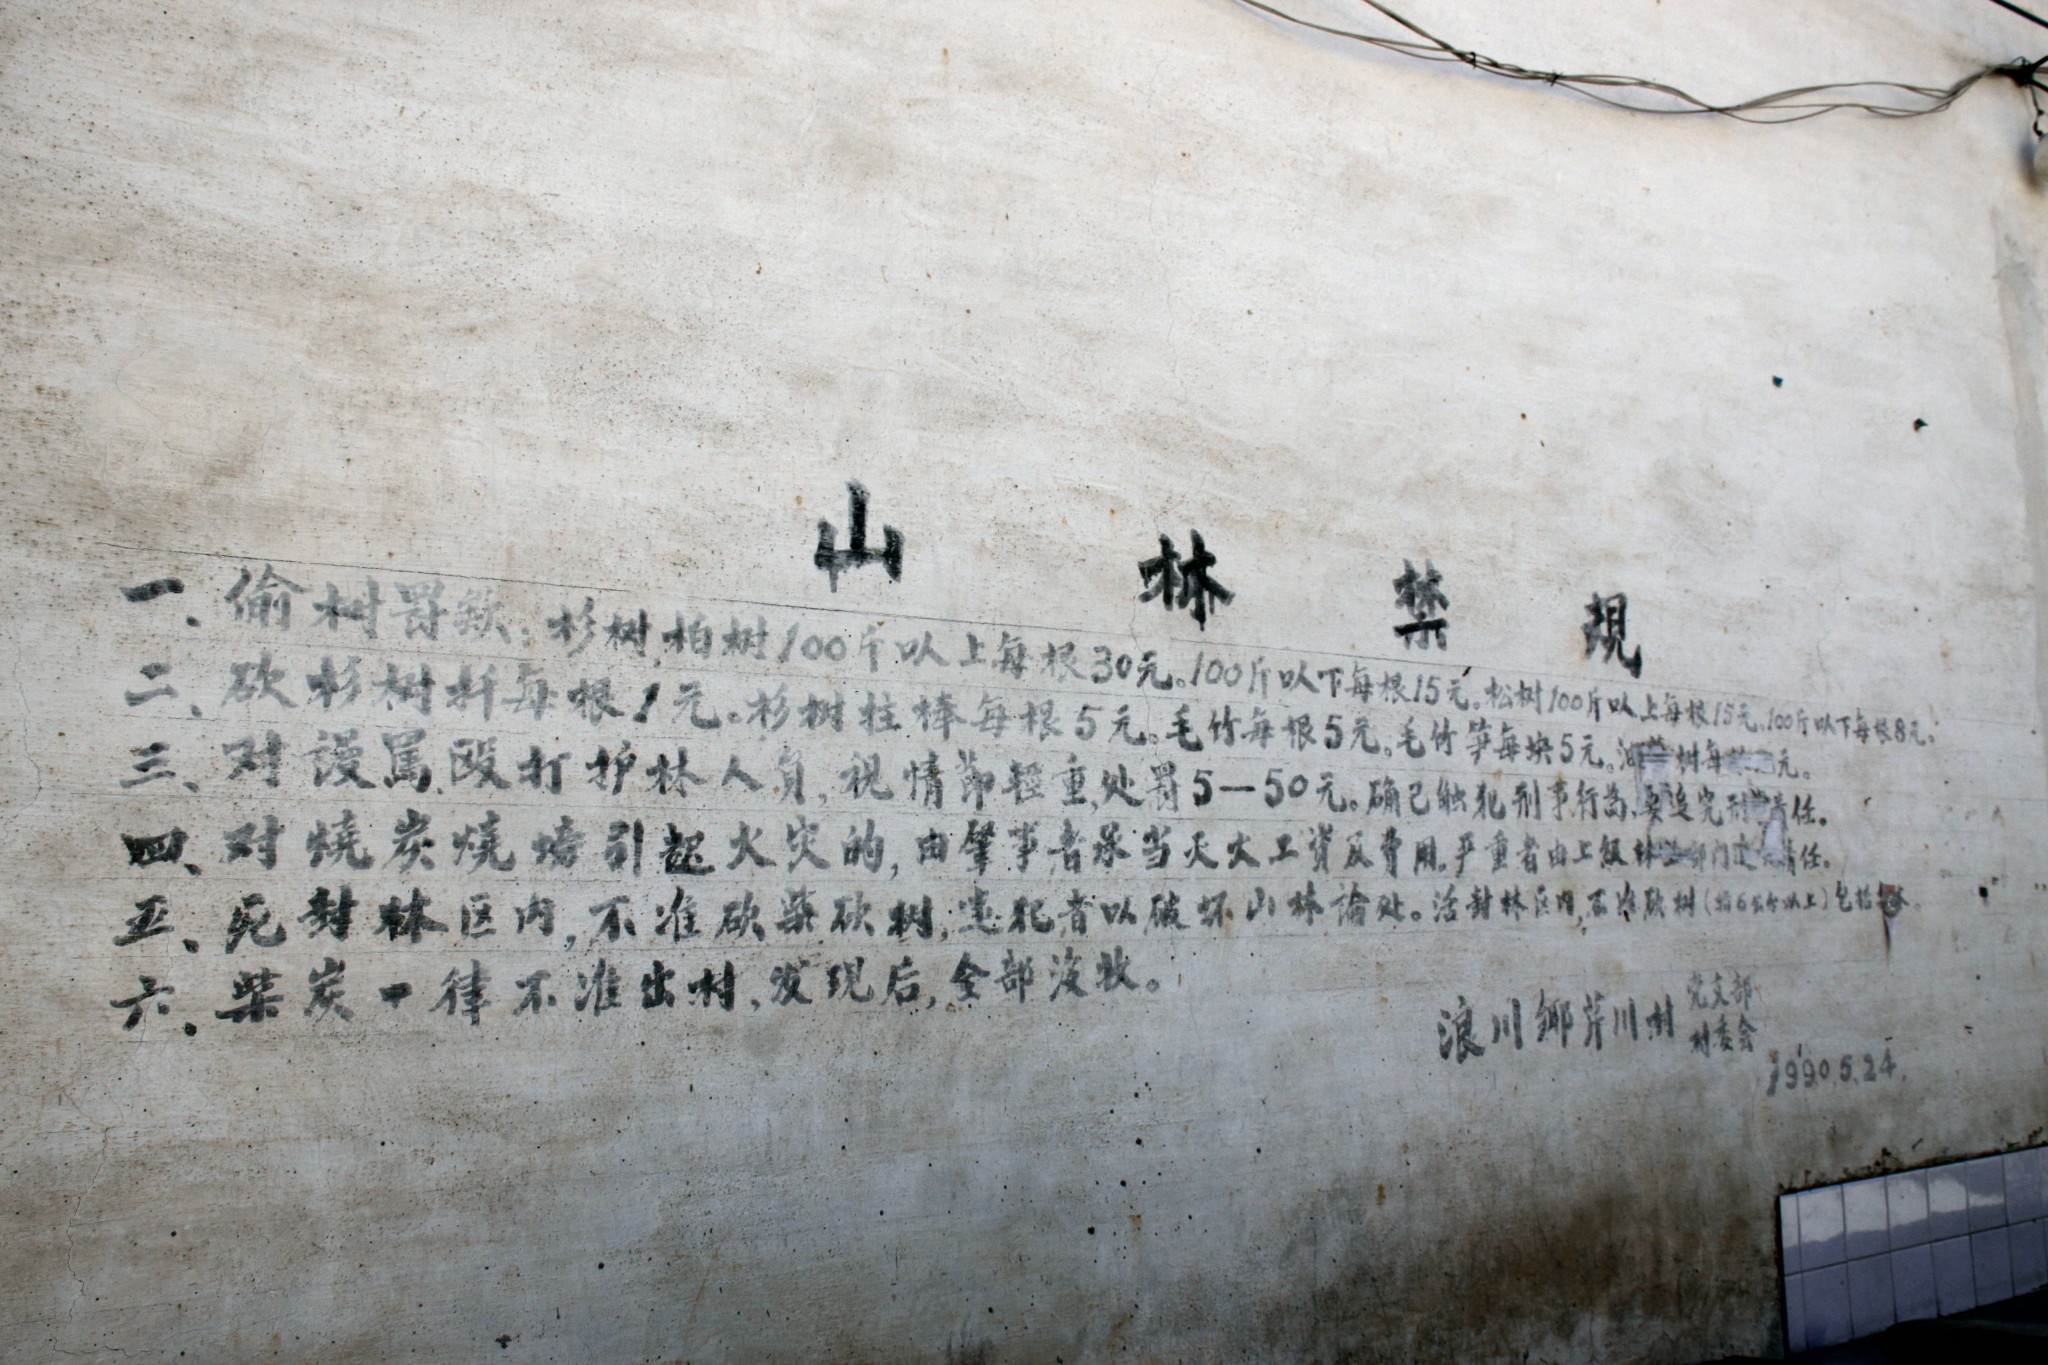 山林禁規
一、偷树罚款：杉树、柏树100斤以上每根30元。100斤以下每根15元。松树100斤以上每根15元。100斤以下每根8元。
二、砍杉树扦每根1元。杉树拄棒每根5元。毛竹每根5元。毛竹笋每块5元。树每元。
三、对谩骂、殴打护林人员，视情节轻重，处罚5—50元。确已触犯刑事行为，要追究刑责任。
四、对燒炭燒焙引起火灾的，由肇事者承当灭火工资及费用。严重者由上级林业部门追究责任。
五、死封林区内，不准砍柴砍树，违犯者以破坏山林论处。活封林区内，不准砍树（指6公分以上）包括
六、柴炭一律不准出村，发现后，全部没收。
浪川鄉芹川村
党支部
村委会
1990.5.24.